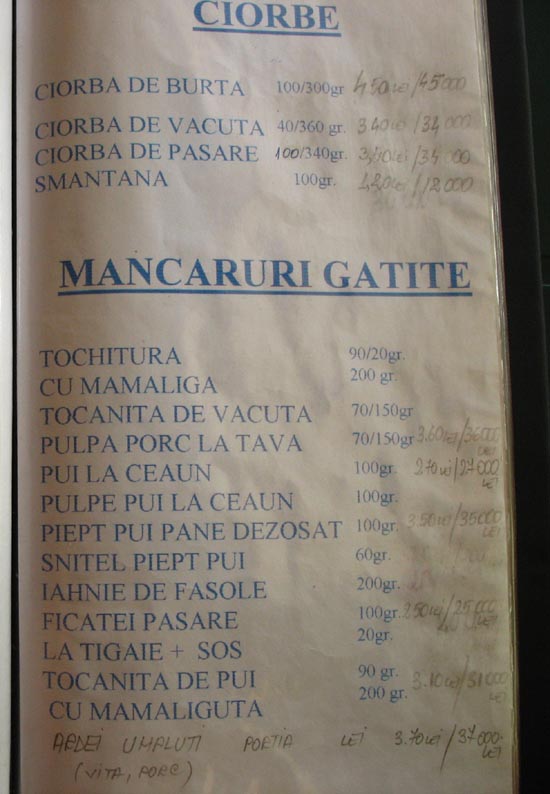 CIORBE
CIORBA DE BURTA 100/300gr 4.50 lei/45000
CIORBA DE VACUTA 40/360 gr. 3.40 lei/34000
CIORBA DE PASARE 100/340gr. 3,40 lei/34000
SMANTANA 100gr. 1,20 lei/12000
MANCARURI GATITE
TOCHITURA 90/20gr.
CU MAMALIGA 200 gr.
TOCANITA DE VACUTA 70/150gr
PULPA PORC LA TAVA 70/150gr 3.60 lei/36000 LEI
PUI LA CEAUN 100gr. 2.70 lei/27000 LEI
PULPE PUI LA CEAUN 100gr.
PIEPT PUI PANE DEZOSAT 100gr. 3.50 lei/35000 LEI
SNITEL PIEPT PUI 60gr.
IAHNIE DE FASOLE 200gr.
FICATEI PASARE 100gr. 2.50 lei/25000 LEI
LA TIGAIE + SOS 20gr.
TOCANITA DE PUI 90 gr. 3.10 lei/31000 LEI
CU MAMALIGUTA 200 gr.
ARDEI UMPLUTI PORTIA LEI 3.70 lei/37000 LEI
(VITA, PORC)